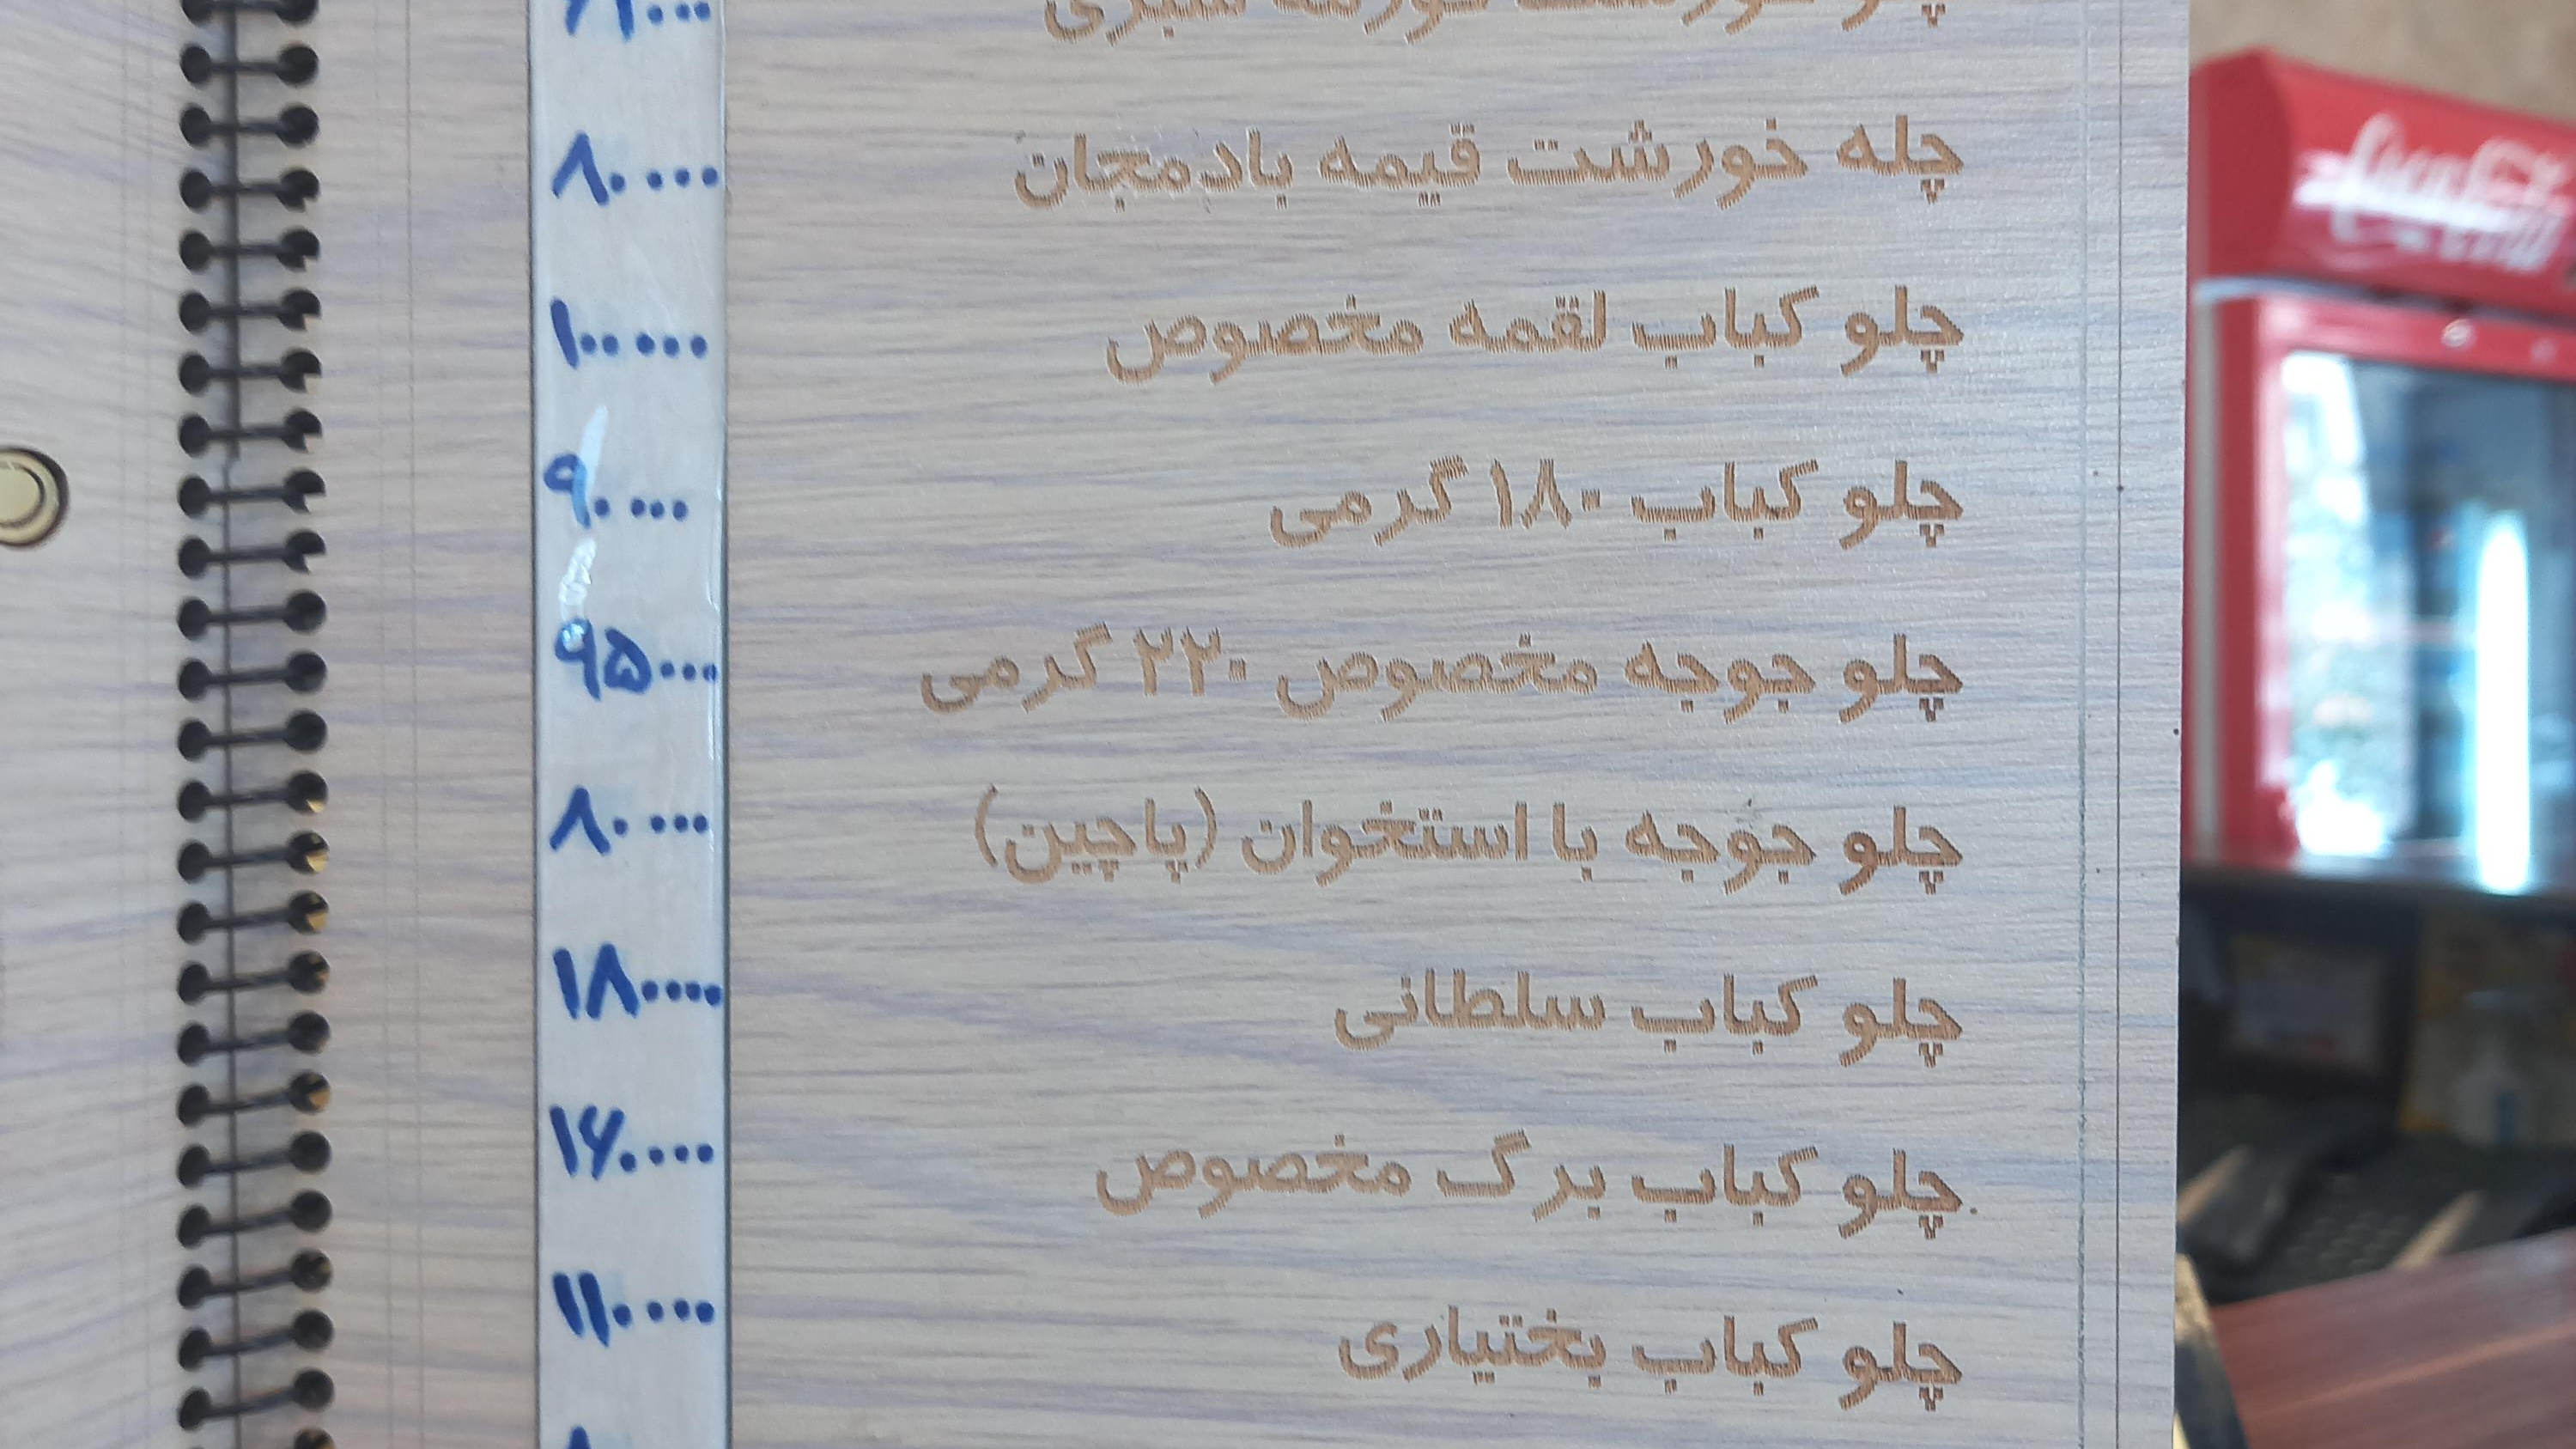 چله خورشت قیمه بادمجان ۸۰۰۰۰
چلو کباب لقمه مخصوص ۱۰۰۰۰۰
چلو کباب ۱۸۰ گرمی ۹۰۰۰۰
چلو جوجه مخصوص ۲۲۰ گرمی ۹۵۰۰۰
چلو جوجه با استخوان (پاچین) ۸۰۰۰۰
چلو کباب سلطانی ۱۸۰۰۰۰
چلو کباب برگ مخصوص ۱۶۰۰۰۰
چلو کباب بختیاری ۱۱۰۰۰۰
Coca-Cola